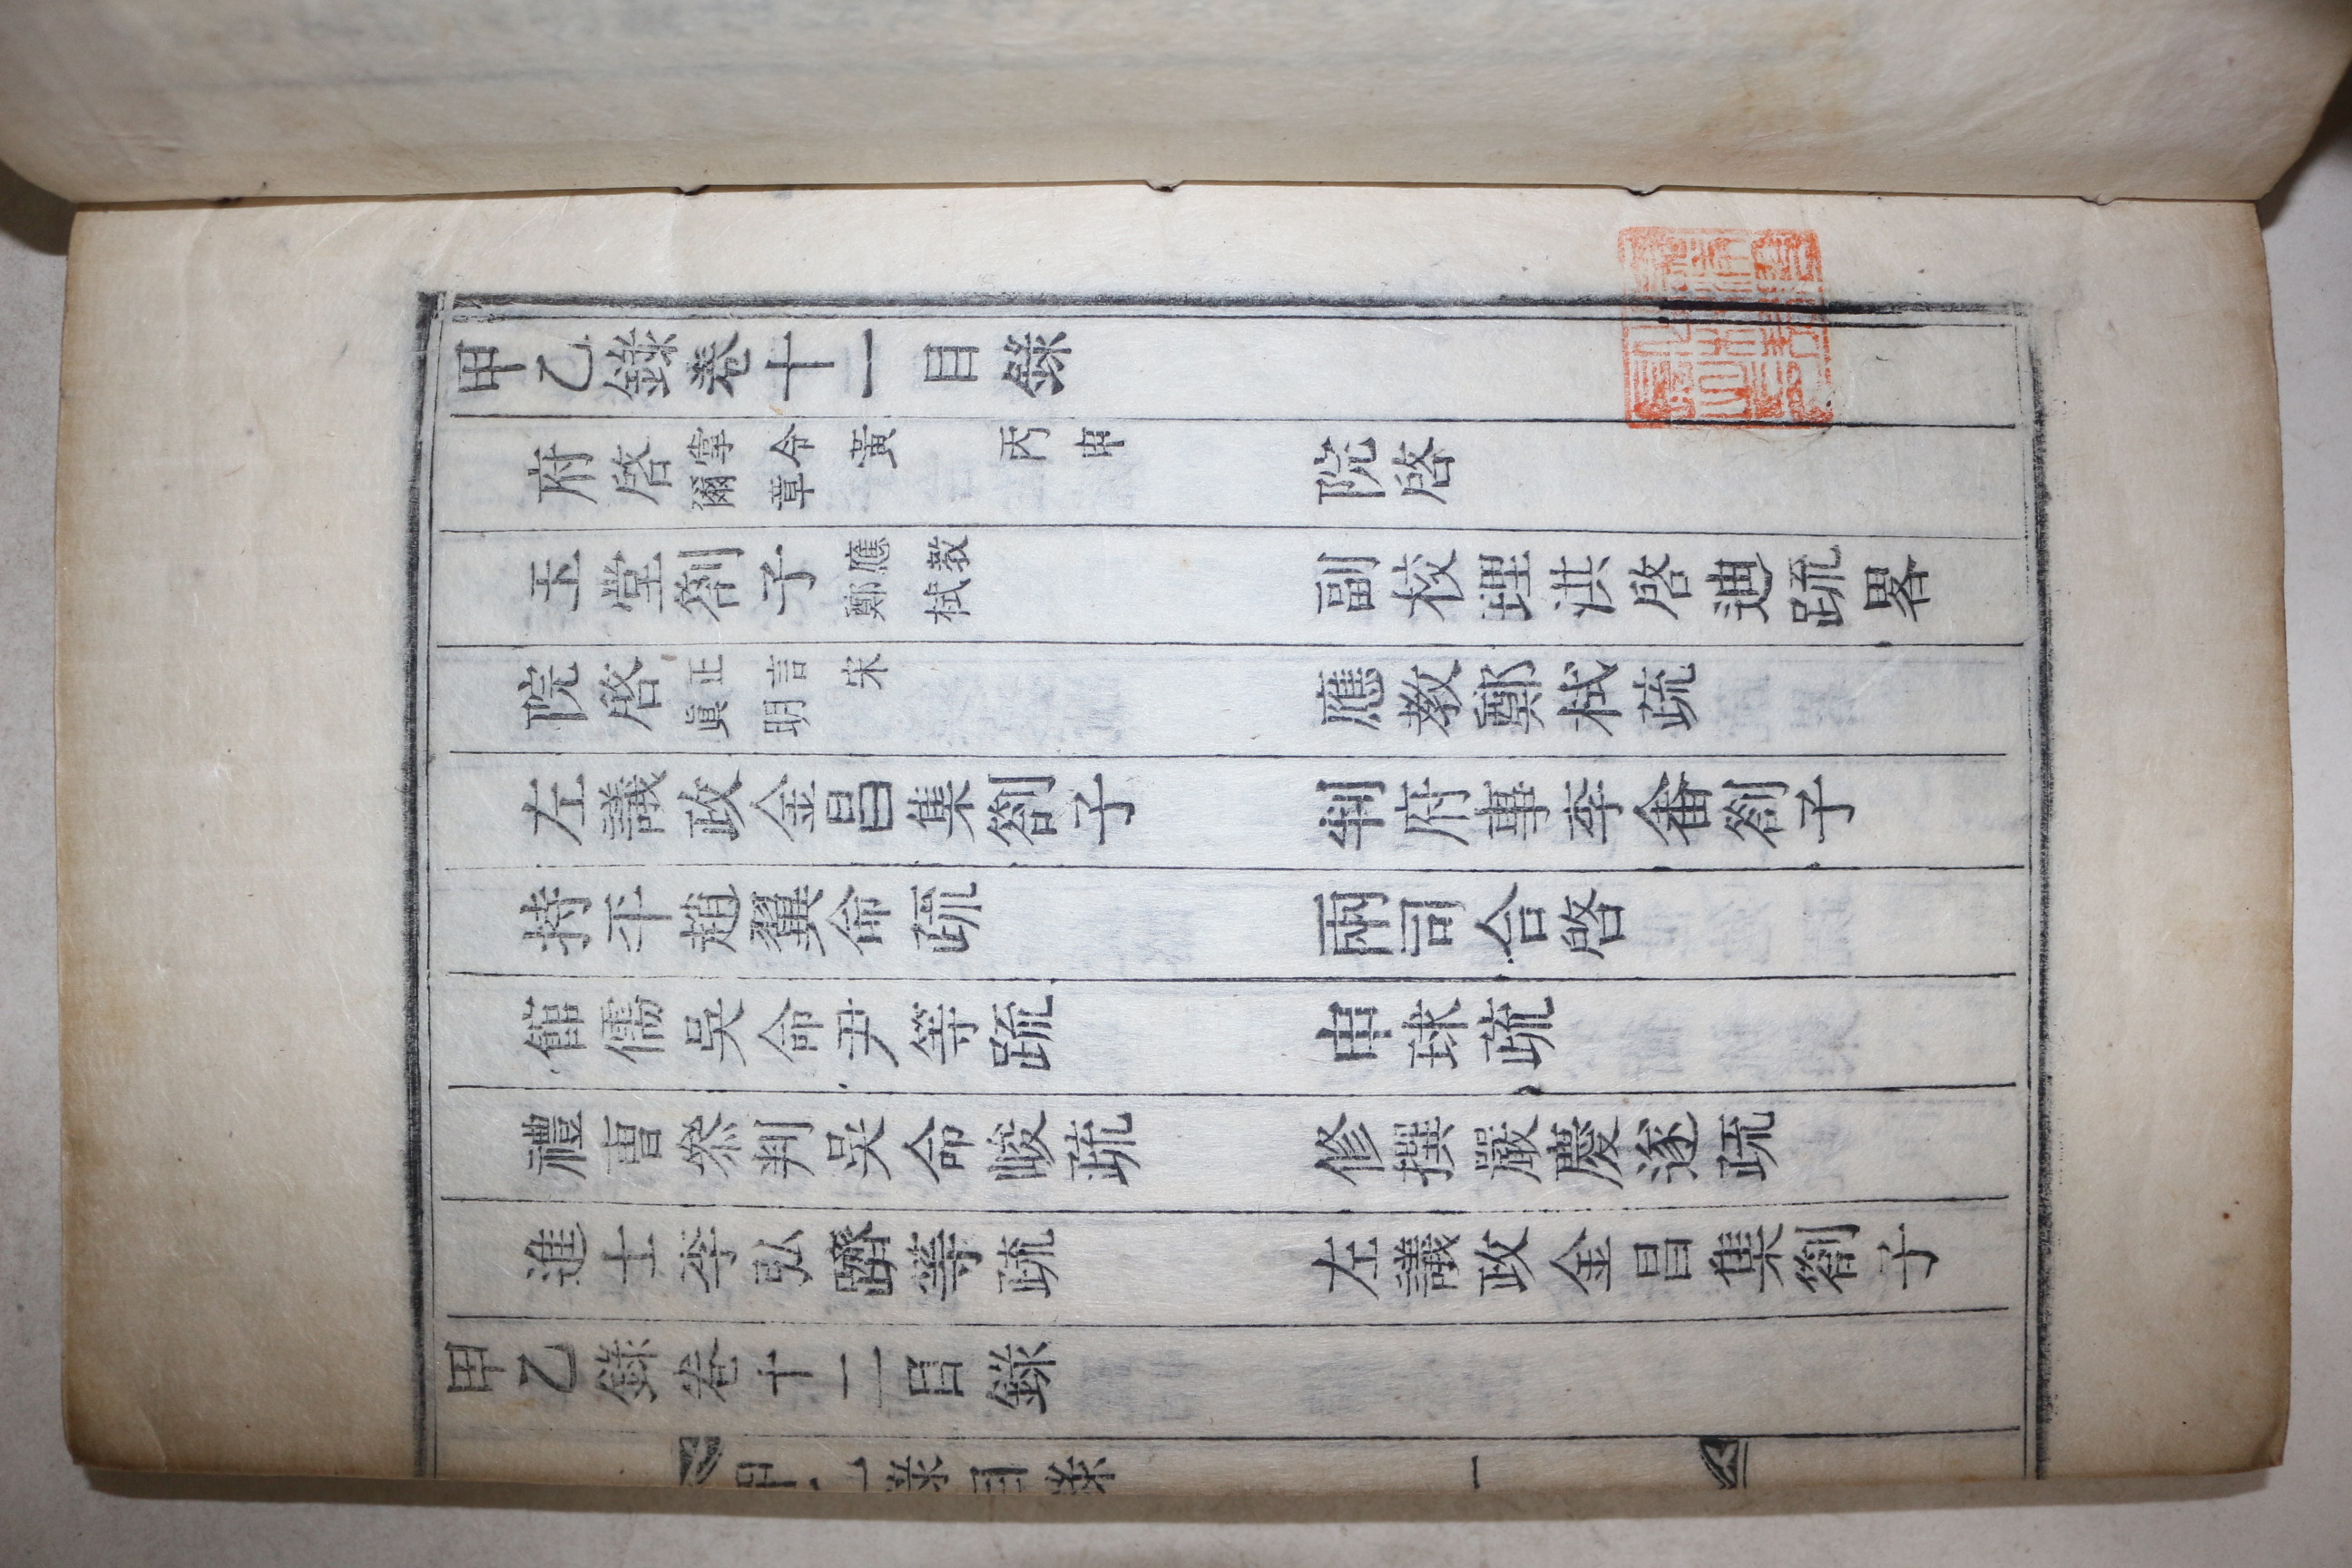 甲乙錄卷十一目錄
府啓 掌令黃爾章 丙申 院啓
玉堂劄子 應教鄭栻 副校理洪啓迪䟽畧
院啓 正言宋眞明 應教鄭栻疏
左議政金昌集劄子 判府事李畬劄子
持平趙翼命疏 兩司合啓
館儒吳命尹等䟽 申球疏
禮曹叅判吳命峻疏 修撰嚴慶遂疏
進士李弘躋等疏 左議政金昌集劄子
甲乙錄卷十二目錄
一